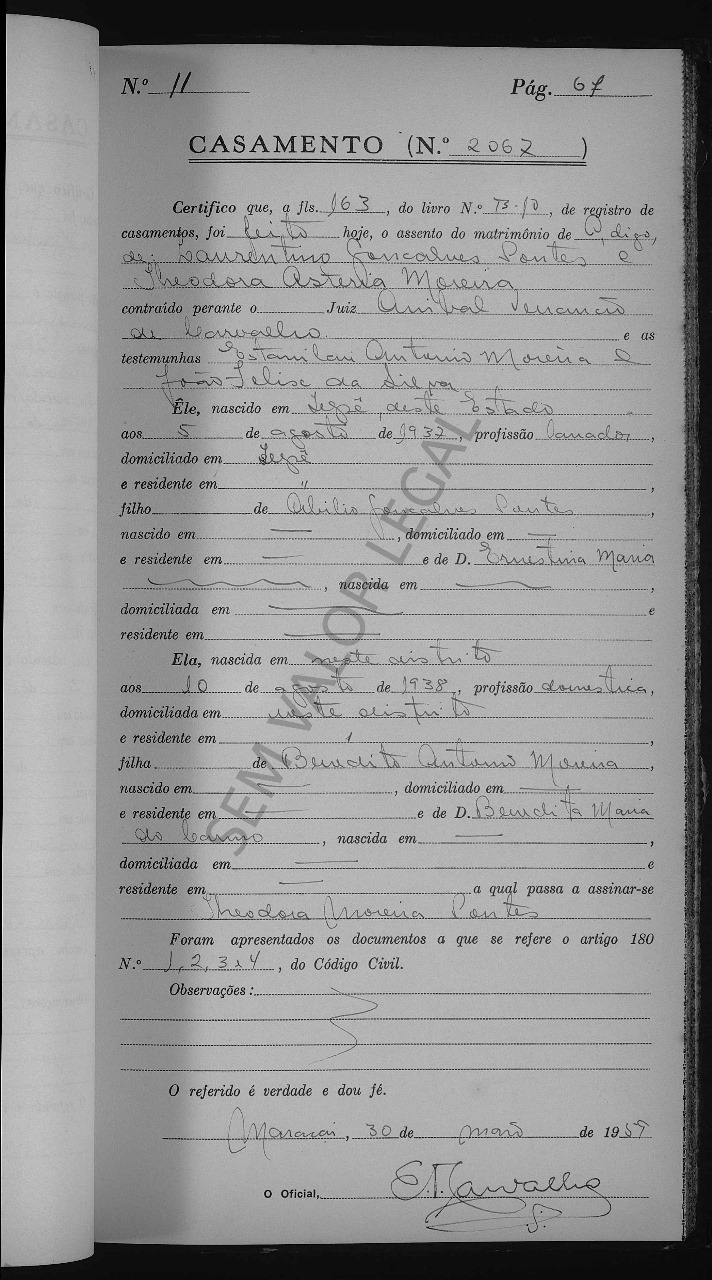 N.º 11 Pág. 67
CASAMENTO (N.º 2067)
Certifico que, a fls. 163, do livro N.º B-10, de registro de
casamentos, foi feito hoje, o assento do matrimônio de digo,
de: Laurentino Gonçalves Pontes e
Theodora Asteria Moreira
contraído perante o Juiz Anibal Venancio
de Carvalho e as
testemunhas Estanilau Antonio Moreira e
João Felise da Silva
Êle, nascido em Iepê, deste Estado
aos 5 de agosto de 1937, profissão lavrador,
domiciliado em Iepê
e residente em " ,
filho de Abilio Gonçalves Pontes ,
nascido em , domiciliado em
e residente em e de D. Ernestina Maria
, nascida em ,
domiciliada em e
residente em
Ela, nascida em neste distrito
aos 10 de agosto de 1938, profissão domestica,
domiciliada em neste distrito
e residente em ,
filha de Benedito Antonio Moreira ,
nascido em , domiciliado em
e residente em e de D. Benedita Maria
do Carmo , nascida em ,
domiciliada em e
residente em a qual passa a assinar-se
Theodora Moreira Pontes
Foram apresentados os documentos a que se refere o artigo 180
N.º 1, 2, 3 e 4 , do Código Civil.
Observações:
O referido é verdade e dou fé.
Maracai, 30 de maio de 1959
O Oficial, Carvalho
SEM VALOR LEGAL